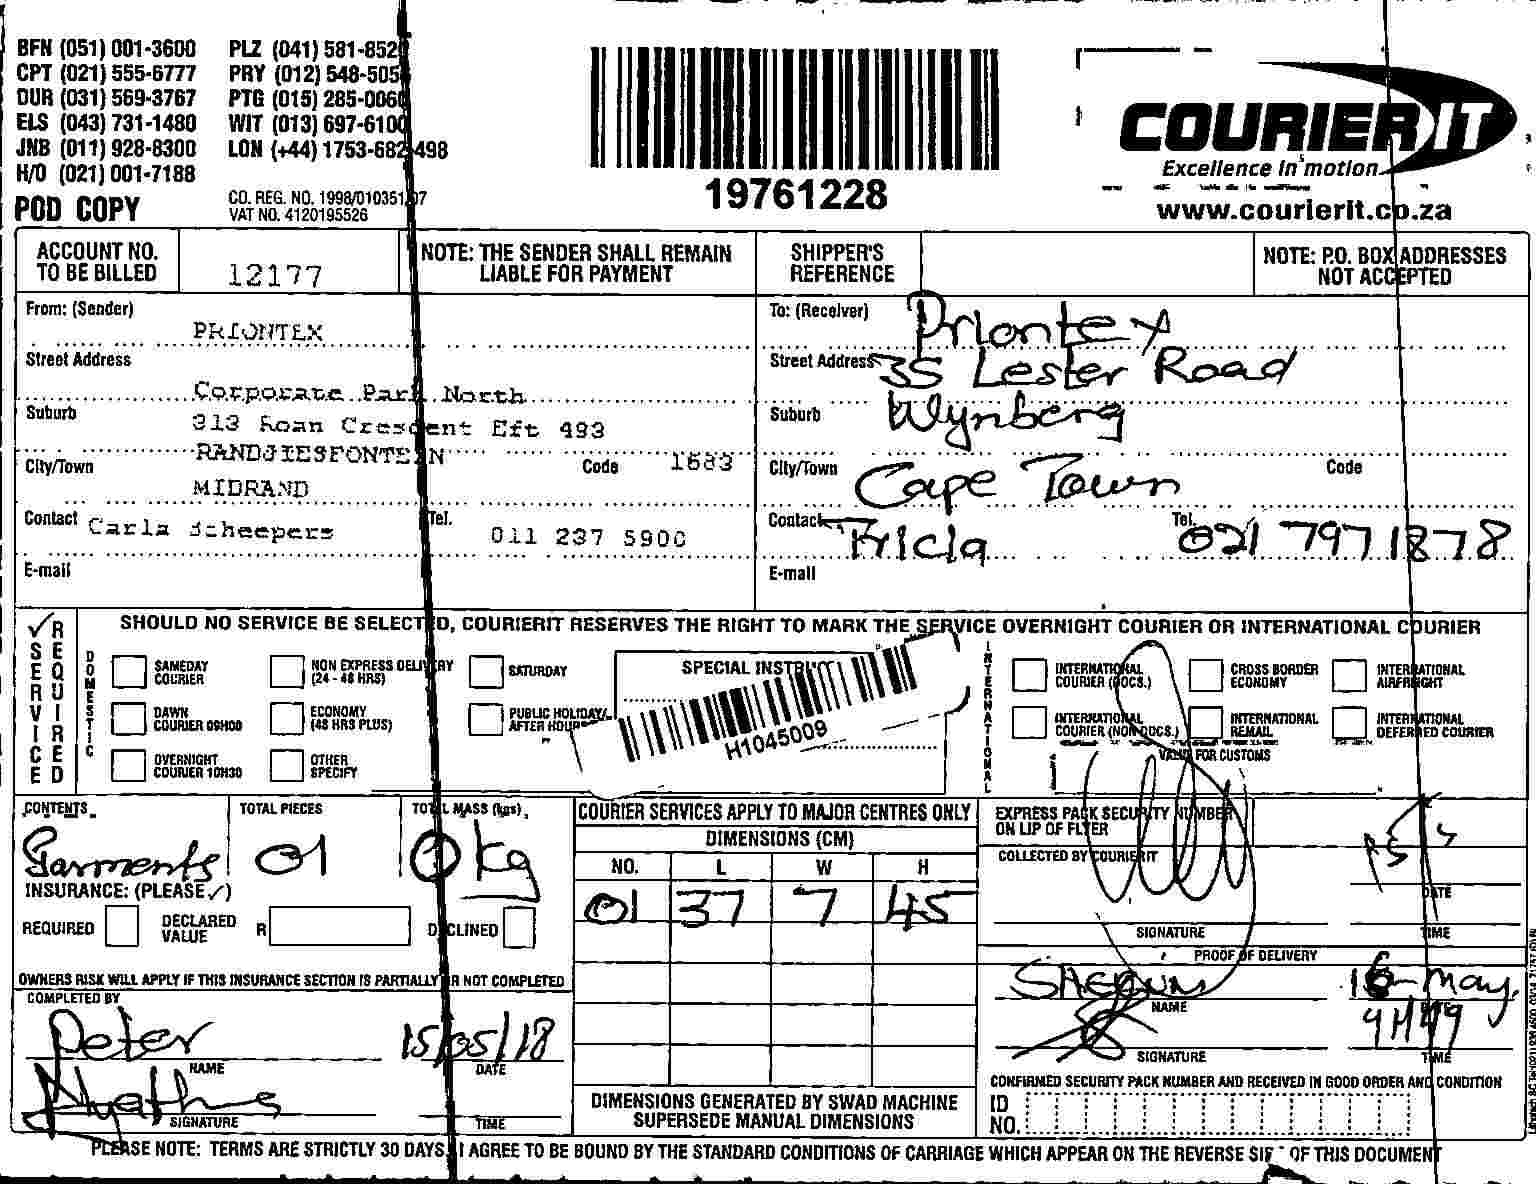 BFN (051) 001-3600 PLZ (041) 581-852
CPT (021) 555-6777 PRY (012) 548-505
DUR (031) 569-3767 PTG (015) 285-0060
ELS (043) 731-1480 WIT (013) 697-6100
JNB (011) 928-8300 LON (+44) 1753-682-498
H/O (021) 001-7188
POD COPY
CO. REG. NO. 1998/010351/07
VAT NO. 4120195526
19761228
COURIER IT
Excellence in motion
www.courierit.co.za
ACCOUNT NO. TO BE BILLED
12177
NOTE: THE SENDER SHALL REMAIN LIABLE FOR PAYMENT
SHIPPER'S REFERENCE
NOTE: P.O. BOX ADDRESSES NOT ACCEPTED
From: (Sender)
PRIONTEX
Street Address
Corporate Park North
Suburb
313 Roan Crescent Eft 493
RANDJIESFONTEIN
City/Town
Code 1683
MIDRAND
Contact Carla Scheepers
Tel. 011 237 5900
E-mail
To: (Receiver) Priontex
Street Address 35 Lester Road
Suburb Wynberg
City/Town Cape Town
Code
Contact Tricia
Tel. 021 7971878
E-mail
SERVICE REQUIRED
SHOULD NO SERVICE BE SELECTED, COURIERIT RESERVES THE RIGHT TO MARK THE SERVICE OVERNIGHT COURIER OR INTERNATIONAL COURIER
DOMESTIC
SAMEDAY COURIER
NON EXPRESS DELIVERY (24 - 48 HRS)
SATURDAY
DAWN COURIER 09H00
ECONOMY (48 HRS PLUS)
PUBLIC HOLIDAY/ AFTER HOURS
OVERNIGHT COURIER 10H30
OTHER SPECIFY
SPECIAL INSTRUCT
H1045009
INTERNATIONAL
INTERNATIONAL COURIER (DOCS.)
CROSS BORDER ECONOMY
INTERNATIONAL AIRFREIGHT
INTERNATIONAL COURIER (NON DOCS.)
INTERNATIONAL REMAIL
INTERNATIONAL DEFERRED COURIER
VALUE FOR CUSTOMS
CONTENTS
Garments
TOTAL PIECES
01
TOTAL MASS (kgs)
kg
INSURANCE: (PLEASE ✓)
REQUIRED
DECLARED VALUE R
DECLINED
OWNERS RISK WILL APPLY IF THIS INSURANCE SECTION IS PARTIALLY OR NOT COMPLETED
COMPLETED BY
Peter
NAME
15/05/18
DATE
SIGNATURE
TIME
COURIER SERVICES APPLY TO MAJOR CENTRES ONLY
DIMENSIONS (CM)
NO. L W H
01 37 7 45
DIMENSIONS GENERATED BY SWAD MACHINE SUPERSEDE MANUAL DIMENSIONS
EXPRESS PACK SECURITY NUMBER ON LIP OF FLYER
COLLECTED BY COURIERIT
DATE
SIGNATURE
TIME
PROOF OF DELIVERY
16-May
NAME
DATE
9H49
SIGNATURE
TIME
CONFIRMED SECURITY PACK NUMBER AND RECEIVED IN GOOD ORDER AND CONDITION
ID NO.
PLEASE NOTE: TERMS ARE STRICTLY 30 DAYS. I AGREE TO BE BOUND BY THE STANDARD CONDITIONS OF CARRIAGE WHICH APPEAR ON THE REVERSE SIDE OF THIS DOCUMENT